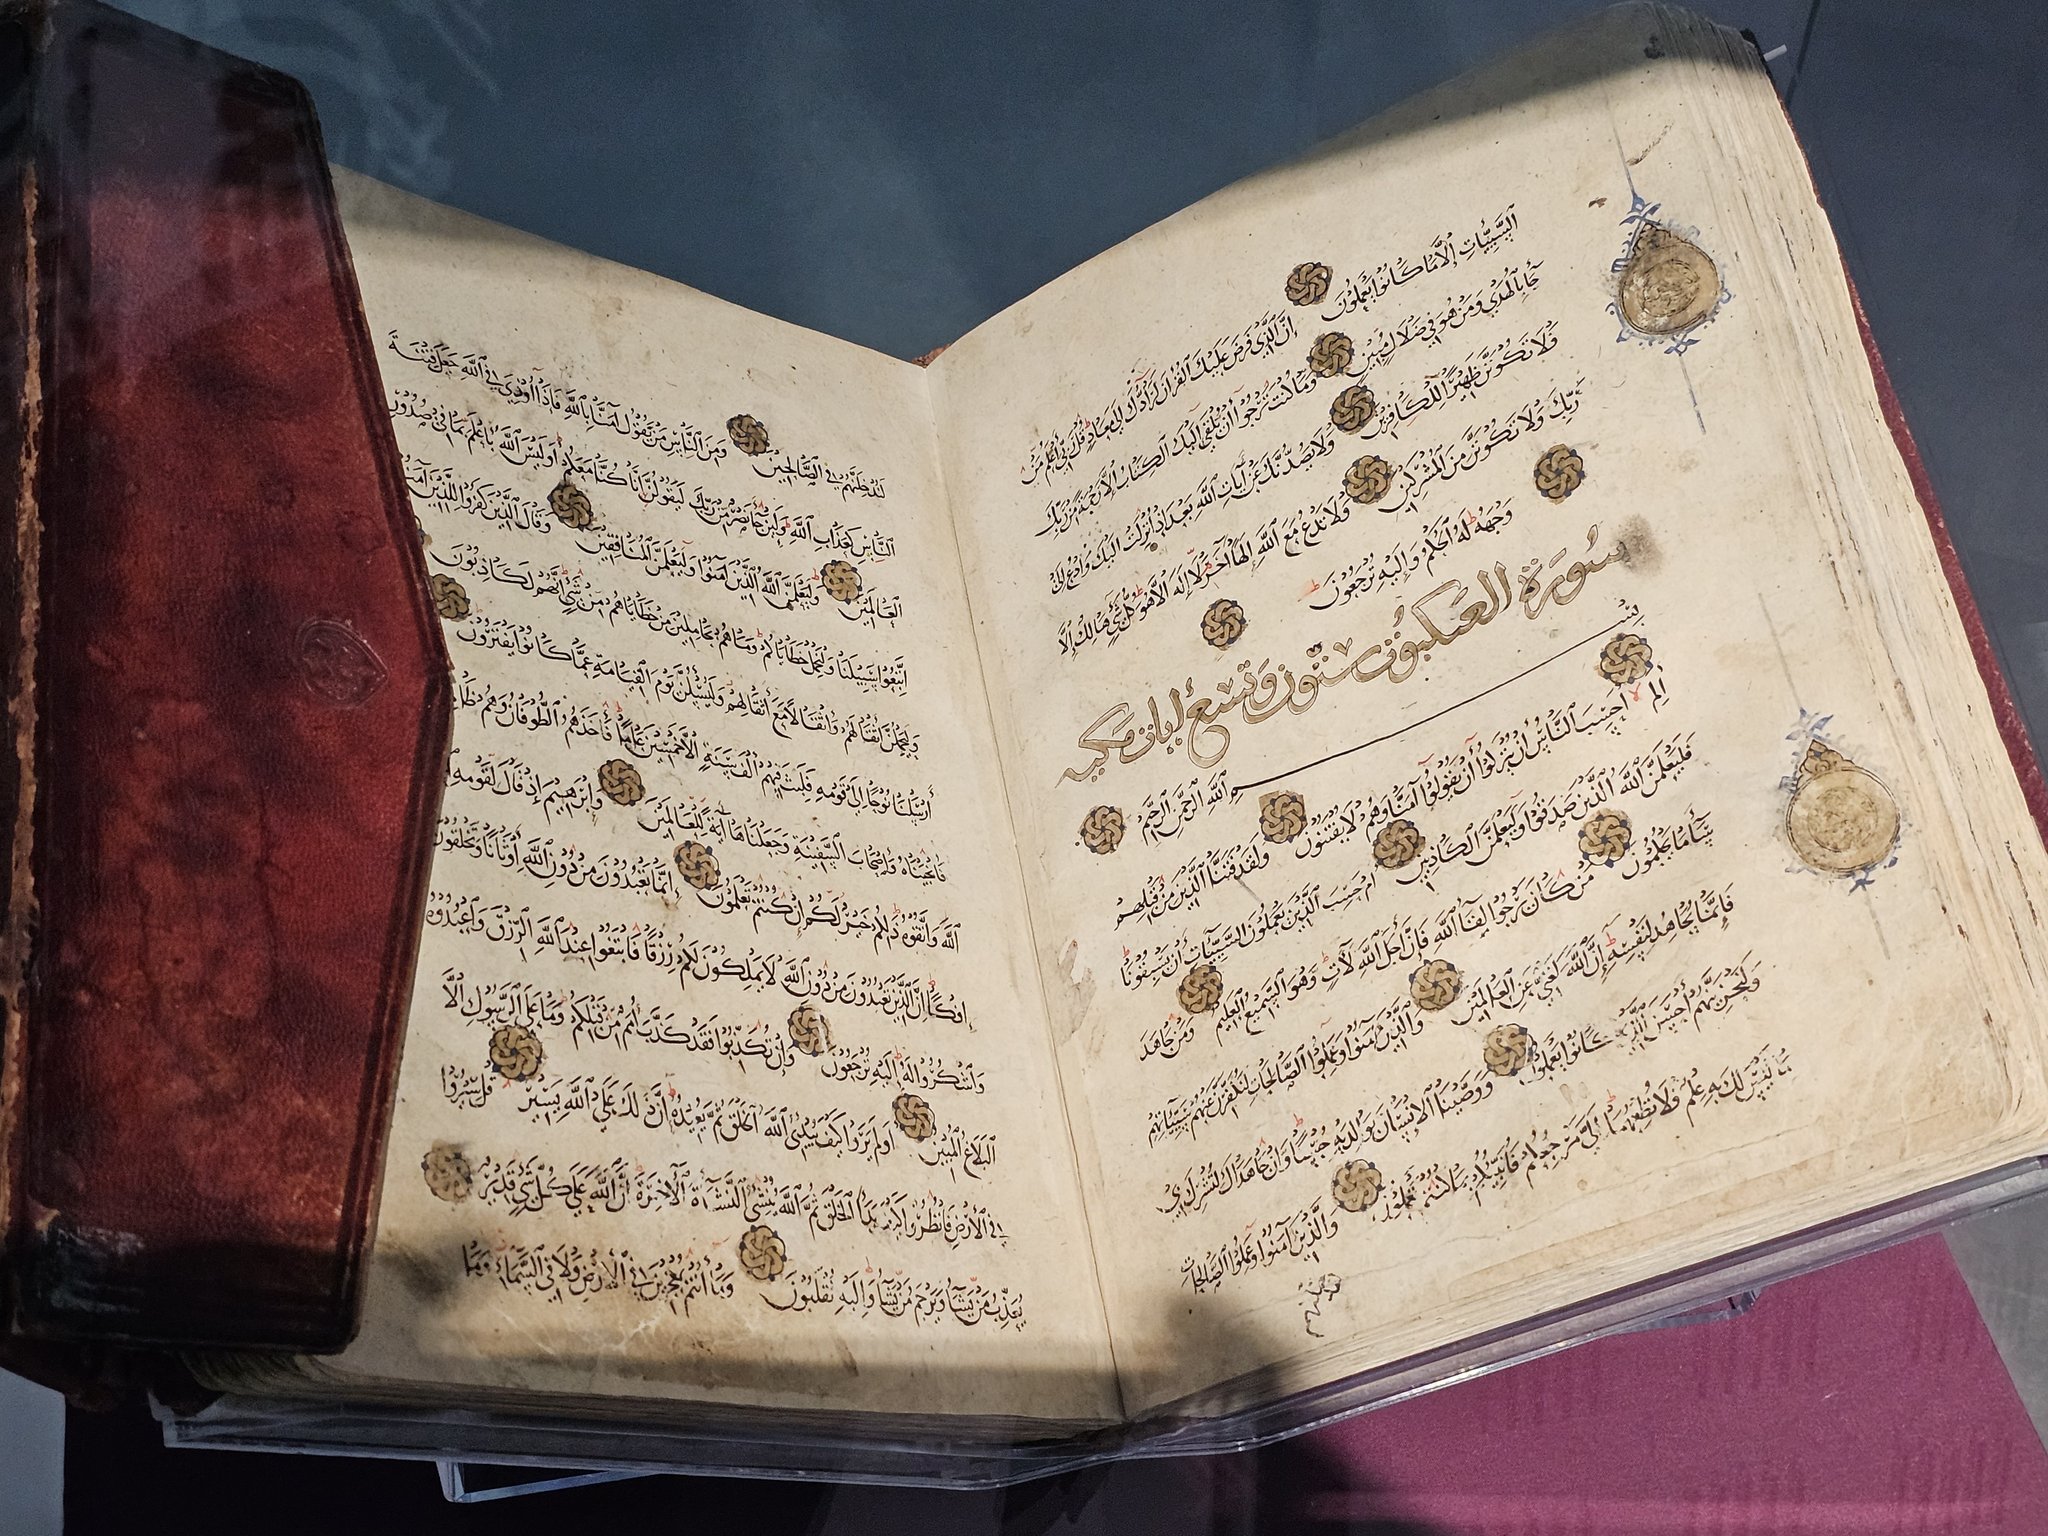 اَلسَّيِّئَاتِ إِلَّا مَا كَانُوا يَعْمَلُونَ إِنَّ الَّذِي فَرَضَ عَلَيْكَ الْقُرْآنَ لَرَادُّكَ إِلَى مَعَادٍ قُلْ رَبِّي أَعْلَمُ مَنْ
جَاءَ بِالْهُدَى وَمَنْ هُوَ فِي ضَلَالٍ مُبِينٍ وَمَا كُنْتَ تَرْجُوا أَنْ يُلْقَى إِلَيْكَ الْكِتَابُ إِلَّا رَحْمَةً مِنْ رَبِّكَ
فَلَا تَكُونَنَّ ظَهِيرًا لِلْكَافِرِينَ وَلَا يَصُدُّنَّكَ عَنْ آيَاتِ اللَّهِ بَعْدَ إِذْ أُنْزِلَتْ إِلَيْكَ وَادْعُ إِلَى
رَبِّكَ وَلَا تَكُونَنَّ مِنَ الْمُشْرِكِينَ وَلَا تَدْعُ مَعَ اللَّهِ إِلَهًا آخَرَ لَا إِلَهَ إِلَّا هُوَ كُلُّ شَيْءٍ هَالِكٌ إِلَّا
وَجْهَهُ لَهُ الْحُكْمُ وَإِلَيْهِ تُرْجَعُونَ
سُورَة العنكبوت ستون وتسع ايات مكية
بِسْمِ اللَّهِ الرَّحْمَنِ الرَّحِيمِ
الم أَحَسِبَ النَّاسُ أَنْ يُتْرَكُوا أَنْ يَقُولُوا آمَنَّا وَهُمْ لَا يُفْتَنُونَ وَلَقَدْ فَتَنَّا الَّذِينَ مِنْ قَبْلِهِمْ
فَلَيَعْلَمَنَّ اللَّهُ الَّذِينَ صَدَقُوا وَلَيَعْلَمَنَّ الْكَاذِبِينَ أَمْ حَسِبَ الَّذِينَ يَعْمَلُونَ السَّيِّئَاتِ أَنْ يَسْبِقُونَا
سَاءَ مَا يَحْكُمُونَ مَنْ كَانَ يَرْجُوا لِقَاءَ اللَّهِ فَإِنَّ أَجَلَ اللَّهِ لَآتٍ وَهُوَ السَّمِيعُ الْعَلِيمُ وَمَنْ جَاهَدَ
فَإِنَّمَا يُجَاهِدُ لِنَفْسِهِ إِنَّ اللَّهَ لَغَنِيٌّ عَنِ الْعَالَمِينَ وَالَّذِينَ آمَنُوا وَعَمِلُوا الصَّالِحَاتِ لَنُكَفِّرَنَّ عَنْهُمْ سَيِّئَاتِهِمْ
وَلَنَجْزِيَنَّهُمْ أَحْسَنَ الَّذِي كَانُوا يَعْمَلُونَ وَوَصَّيْنَا الْإِنْسَانَ بِوَالِدَيْهِ حُسْنًا وَإِنْ جَاهَدَاكَ لِتُشْرِكَ بِي
مَا لَيْسَ لَكَ بِهِ عِلْمٌ فَلَا تُطِعْهُمَا إِلَيَّ مَرْجِعُكُمْ فَأُنَبِّئُكُمْ بِمَا كُنْتُمْ تَعْمَلُونَ وَالَّذِينَ آمَنُوا وَعَمِلُوا الصَّالِحَاتِ
لندخلنهم
لَنُدْخِلَنَّهُمْ فِي الصَّالِحِينَ وَمِنَ النَّاسِ مَنْ يَقُولُ آمَنَّا بِاللَّهِ فَإِذَا أُوذِيَ فِي اللَّهِ جَعَلَ فِتْنَةَ
النَّاسِ كَعَذَابِ اللَّهِ وَلَئِنْ جَاءَ نَصْرٌ مِنْ رَبِّكَ لَيَقُولُنَّ إِنَّا كُنَّا مَعَكُمْ أَوَلَيْسَ اللَّهُ بِأَعْلَمَ بِمَا فِي صُدُورِ
الْعَالَمِينَ وَلَيَعْلَمَنَّ اللَّهُ الَّذِينَ آمَنُوا وَلَيَعْلَمَنَّ الْمُنَافِقِينَ وَقَالَ الَّذِينَ كَفَرُوا لِلَّذِينَ آمَنُوا
اتَّبِعُوا سَبِيلَنَا وَلْنَحْمِلْ خَطَايَاكُمْ وَمَا هُمْ بِحَامِلِينَ مِنْ خَطَايَاهُمْ مِنْ شَيْءٍ إِنَّهُمْ لَكَاذِبُونَ
وَلَيَحْمِلُنَّ أَثْقَالَهُمْ وَأَثْقَالًا مَعَ أَثْقَالِهِمْ وَلَيُسْئَلُنَّ يَوْمَ الْقِيَامَةِ عَمَّا كَانُوا يَفْتَرُونَ
أَرْسَلْنَا نُوحًا إِلَى قَوْمِهِ فَلَبِثَ فِيهِمْ أَلْفَ سَنَةٍ إِلَّا خَمْسِينَ عَامًا فَأَخَذَهُمُ الطُّوفَانُ وَهُمْ
فَأَنْجَيْنَاهُ وَأَصْحَابَ السَّفِينَةِ وَجَعَلْنَاهَا آيَةً لِلْعَالَمِينَ وَإِبْرَهِيمَ إِذْ قَالَ لِقَوْمِهِ
اللَّهَ وَاتَّقُوهُ ذَلِكُمْ خَيْرٌ لَكُمْ إِنْ كُنْتُمْ تَعْلَمُونَ إِنَّمَا تَعْبُدُونَ مِنْ دُونِ اللَّهِ أَوْثَانًا وَتَخْلُقُونَ
إِفْكًا إِنَّ الَّذِينَ تَعْبُدُونَ مِنْ دُونِ اللَّهِ لَا يَمْلِكُونَ لَكُمْ رِزْقًا فَابْتَغُوا عِنْدَ اللَّهِ الرِّزْقَ وَاعْبُدُوهُ
وَاشْكُرُوا لَهُ إِلَيْهِ تُرْجَعُونَ وَإِنْ تُكَذِّبُوا فَقَدْ كَذَّبَ أُمَمٌ مِنْ قَبْلِكُمْ وَمَا عَلَى الرَّسُولِ إِلَّا
الْبَلَاغُ الْمُبِينُ أَوَلَمْ يَرَوْا كَيْفَ يُبْدِئُ اللَّهُ الْخَلْقَ ثُمَّ يُعِيدُهُ إِنَّ ذَلِكَ عَلَى اللَّهِ يَسِيرٌ قُلْ سِيرُوا
فِي الْأَرْضِ فَانْظُرُوا كَيْفَ بَدَأَ الْخَلْقَ ثُمَّ اللَّهُ يُنْشِئُ النَّشْأَةَ الْآخِرَةَ إِنَّ اللَّهَ عَلَى كُلِّ شَيْءٍ قَدِيرٌ
يُعَذِّبُ مَنْ يَشَاءُ وَيَرْحَمُ مَنْ يَشَاءُ وَإِلَيْهِ تُقْلَبُونَ وَمَا أَنْتُمْ بِمُعْجِزِينَ فِي الْأَرْضِ وَلَا فِي السَّمَاءِ وَمَا